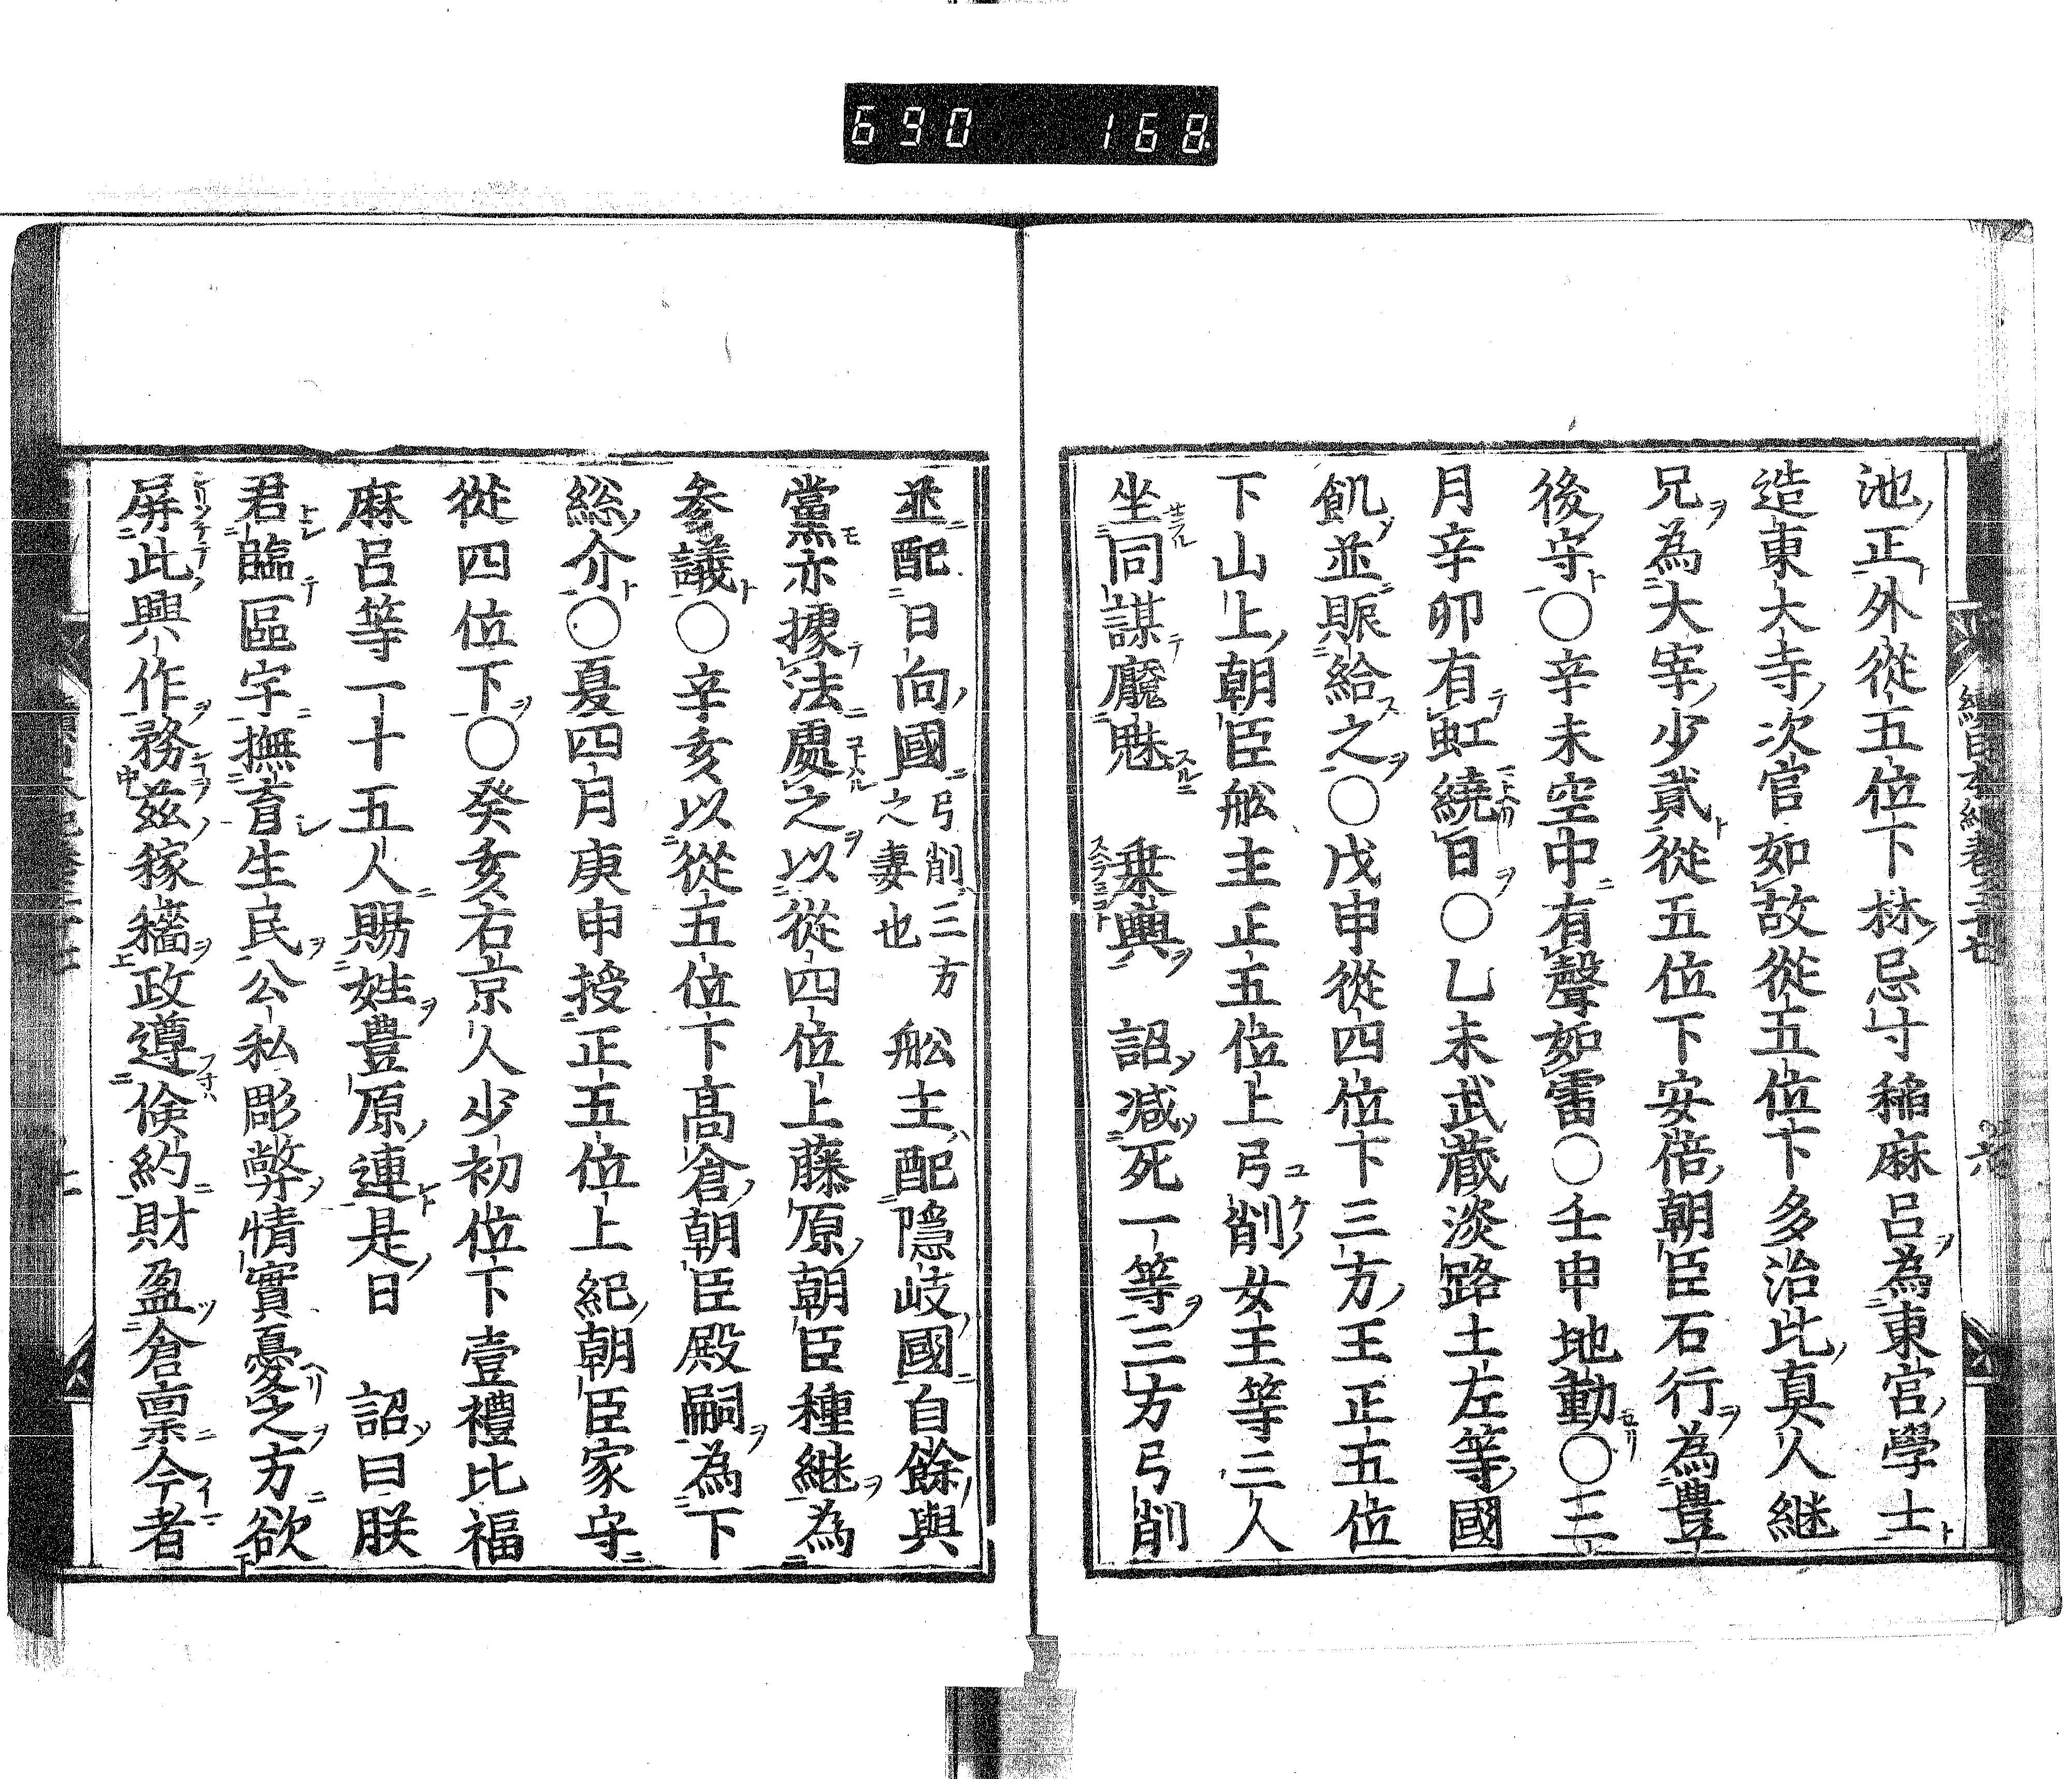 690 168
池正外從五位下林忌寸稲麻呂為東宮學士
造東大寺次官如故從五位下多治比真人継
兄為大宰少貳從五位下安倍朝臣石行為豊
後守○辛未空中有聲如雷○壬申地動○三
月辛卯有虹繞日○乙未武蔵淡路土左等國
飢並賑給之○戊申從四位下三方王正五位
下山上朝臣舩主正五位上弓削女王等三人
坐同謀魘魅 乗輿 詔减死一等三方弓削
並配日向國弓削三方之妻也 舩主配隠岐國自餘與
黨亦據法處之以從四位上藤原朝臣種継為
参議○辛亥以從五位下髙倉朝臣殿嗣為下
総介○夏四月庚申授正五位上紀朝臣家守
從四位下○癸亥右京人少初位下壹禮比福
麻呂等一十五人賜姓豊原連是日 詔曰朕
君臨區宇撫育生民公私彫弊情實憂之方欲
屏此興作務茲稼穡政遵儉約財盈倉禀今者